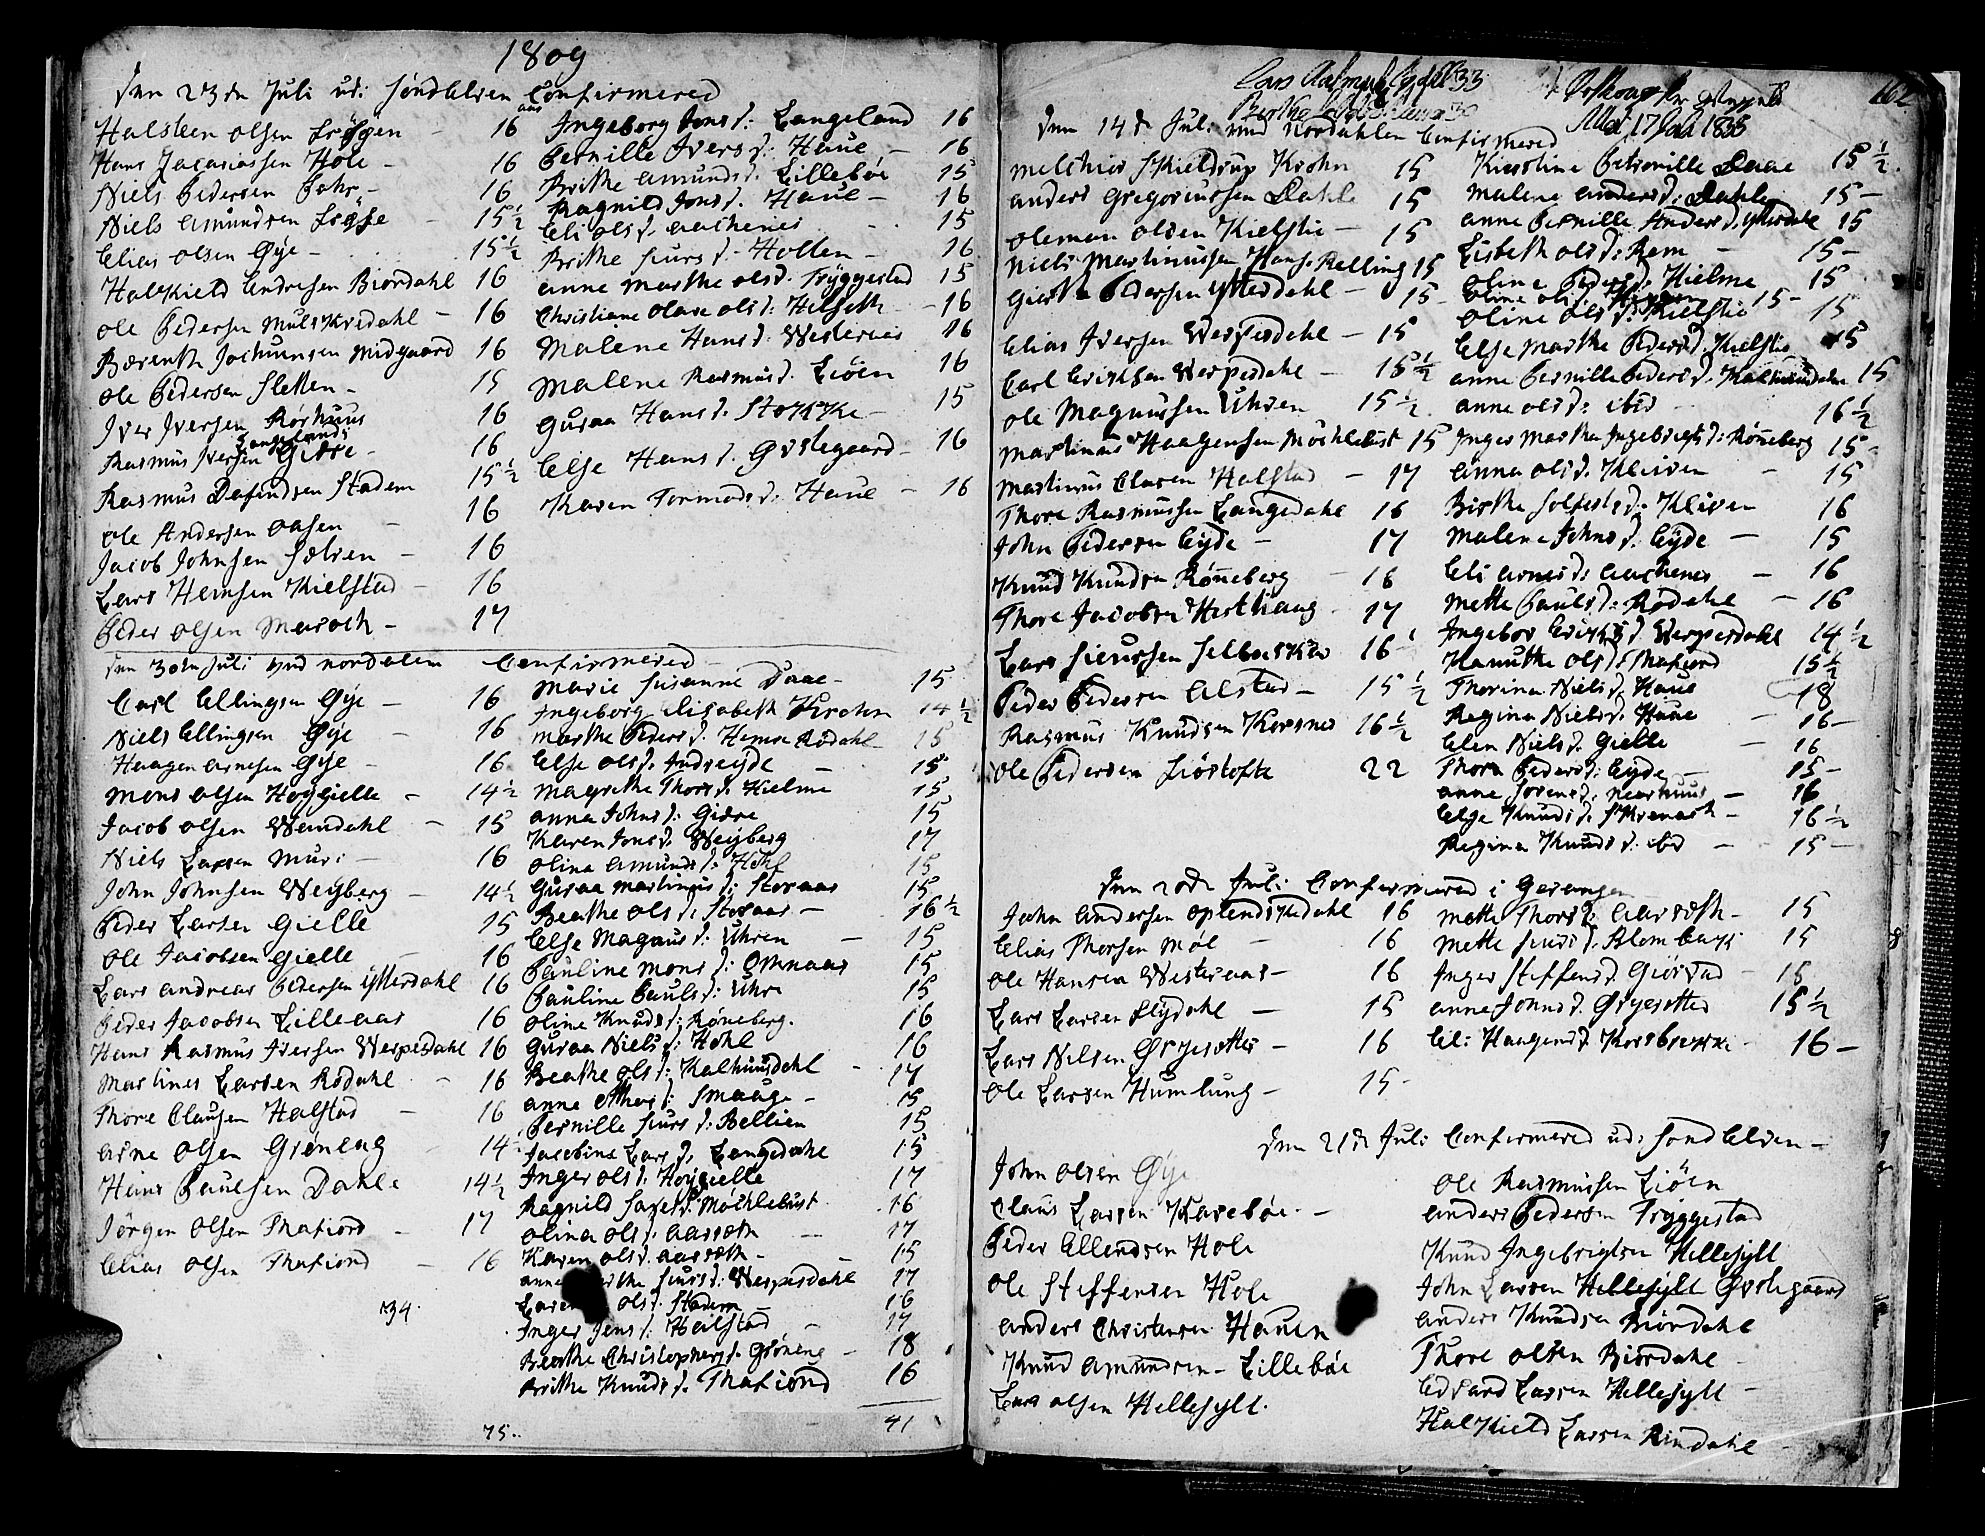 1809
den 23de Juli ud: Søndelven Confirmered
Halsteen Olsen Frøysen - 16
Hans Zacariassen Hole - 16
Niels Pedersen - 16
Niels Amundsen Frøyse - 15 1/2
Elias Olsen Øye - 15 1/2
Halvkield Endresen Biørdahl 16
Ole Pedersen Mulskredahl - 16
Berenth Jochumsen Midgaard 16
Ole Pedersen Sletten - 15
Iver Iversen Rørhuus 16
Rasmus Iversen Giære - 16
Rasmus Dafindsen Stadem 15 1/2
Ole Andersen Aasen - 16
Jacob Johnsen Sælven - 16
Lars Heinsen Kielstad - 16
Peder Olsen Maroch - 17
Ingeborg Jons d: Langeland 16
Pernille Ivers d: Haue - 16
Brithe Amunds d. Lillebøe 15
Ragnild Jons d. Haue - 16
Eli Ols d. Aachenes - 15
Brithe Siurs d. Holten - 16
Anne Marthe Ols d. Tryggestad 15
Christiane Olave Ols d: Helseth - 16
Malene Hans d. Westeraas 16
Malene Rasmus d. Liøen 16
Guraa Hans d. Stokke - 15
Else Hans d. Ørstegaard - 16
Karen Tormods d: Haue - 16
den 30te Juli ved Nordalen Confirmered -
Carl Ellingsen Øye - 16
Niels Ellingsen Øye - 16
Haagen Arnesen Øye - 16
Mons Olsen Høygielle - 14 1/2
Jacob Olsen Wemdahl - 15
Niels Larsen Muri - 16
John Johnsen Weyberg - 14 1/2
Peder Larsen Gielle 15
Ole Jacobsen Gielle - 16
Lars Andreas Pedersen Ytterdahl 16
Peder Jacobsen Lilleaas 16
Hans Rasmus Iversen Werpesdahl 16
Martines Larsen Rødahl - 16
Thore Clausen Halstad - 16
Arne Olsen Grøneng - 14
Hans Paulsen Dahle 14 1/2
Jørgen Olsen Thafiord - 17
Elias Olsen Thafiord - 16
34.
Marie Susanne Daae - 15
Ingeborg Elisabeth Krohn 14 1/2
Marthe Peders d. Rødahl 15
Else Ols d. Indreyde - 15
Magrethe Thors d. Hielme 15
Anna Johns d: Giære 15
Karen Jons d: Weyberg 17
Olina Amunds d: Hohl 15
Guraa Martinus d: Storaas 15
Beathe Ols d: Storaas - 16 1/2
Else Magnus d: Uhren - 15
Pauline Mons d: Omnaas 15
Pauline Pauls d: Uhre 15
Oline Knuds d: Røneberg. 16
Guraa Niels d: Hohl 16
Beathe Ols d: Kalhuusdahl - 17
Anne d: Smaage - 15
Pernille Siurs d: Bellien 15
Jacobina Lars d. Langedahl 15
Inger Ols d. Høygielle 17
Ragnild d: Møchlebust 16
Olina Ols d: Aarseth - 17
Karen Ols d. Aarseth - 15
Anne Siurs d: Werpesdahl 17
Ols d. Stadem - 16
Inger Jens d: Heilstad - 17
Beathe Christophers d. Grøneng - 18
Brithe Knuds d. Thafiord 16
75. 41
Lars 33
Aalesund 17 Juli 1835
162
den 14de Juli ved Nordahlen Confirmered
Melchior Skieldrup Krohn 15
Anders Gregoriussen Dahle 15
Oleman Olsen Kielstie - 15
Niels Martinussen Hans. Relling 15
Pedersen Ytterdahl - 15 -
Elias Iversen Werpesdahl - 15
Carl Erichsen Werpesdahl - 15 1/2
Ole Magnussen Uhren 15 1/2
Martinus Haagensen Møchlebust 15
Martinus Clausen Halstad - 17
Thore Rasmussen Langedahl 16
John Pedersen Eyde - 17
Knud Knudsen Røneberg - 16
Thore Jacobsen Hesthaug - 17
Lars Siurssen Selboeskar 16
Peder Pedersen Alstad - 15 1/2
Rasmus Knudsen Korsnes 16 1/2
Ole Pedersen Liøstofte 22
Kierstine Petronille Daae 15 1/2
Malene Anders d: Dahle 15 -
Anne Pernille Anders d. Ytterdahl 15
Lisbeth Ols d: Rem 15 -
Oline Peders d: Hielme 15
Oline Ols d: 15 -
Oline Ols d: Kielstie 15
Else Marthe Peders d: Kielstie 15
Anne Pernille Peders d. Kalhuusdahl 15
Anne Ols d: ibid - 16 1/2
Inger Marthe Ingebrigts d: Røneberg 15 -
Anna Ols d. Kleiven - 15
Birthe d: Kleiven 16
Malene Johns d. Eyde - 15
Eli Arnes d: Aachenes - 16
Mette Pauls d: Rødahl - 16
Ingebor Erichs d. Werpesdahl 14 1/2
Hanuthe Ols d: Thafiord 15 1/2
Thorina Niels d. Haue 18
Regina Niels d. Haue - 16 -
Elen Niels d. Gielle - 16
Thora Peders d: Eyde - 15 -
Anne d. - 16
Else Knuds d. - 16 1/2
Regina Knuds d. ibid - 15 -
den 20de Juli Confirmered i Geranger
John Andersen Oplendskedahl 16
Elias Thorsen Møl - 16
Ole Hansen Westeraas - 16
Lars Larsen Flydahl - 15
Lars Nilsen Gryesetter - 16
Ole Larsen Humlung - 15 -
Mette Thors d: Aarseth - 15
Mette Siurs d. Blombach 15
Inger Steffens d. Giørvad - 15
Anne Johns d. Gryesetter 15 1/2
Eli: Haagens d. Korsbrekke - 16 -
den 21de Juli Confirmered ud: Søndelven -
John Olsen Øye
Claus Larsen Karebøe -
Peder Ellendsen Hole
Ole Steffensen Hole
Anders Christensen Hauen
Knud Amundsen - Lillebøe
Lars Olsen Hellesylt.
Ole Rasmussen Liøen
Anders Pedersen Tryggestad
Knud Ingebrigtsen Hellesylt
John Larsen Hellesylt Ørstegaard
Anders Knudsen Biørdahl
Thore Olsen Biørdahl -
Edvard Larsen Hellesylt -
Halvkield Larsen Rindahl -